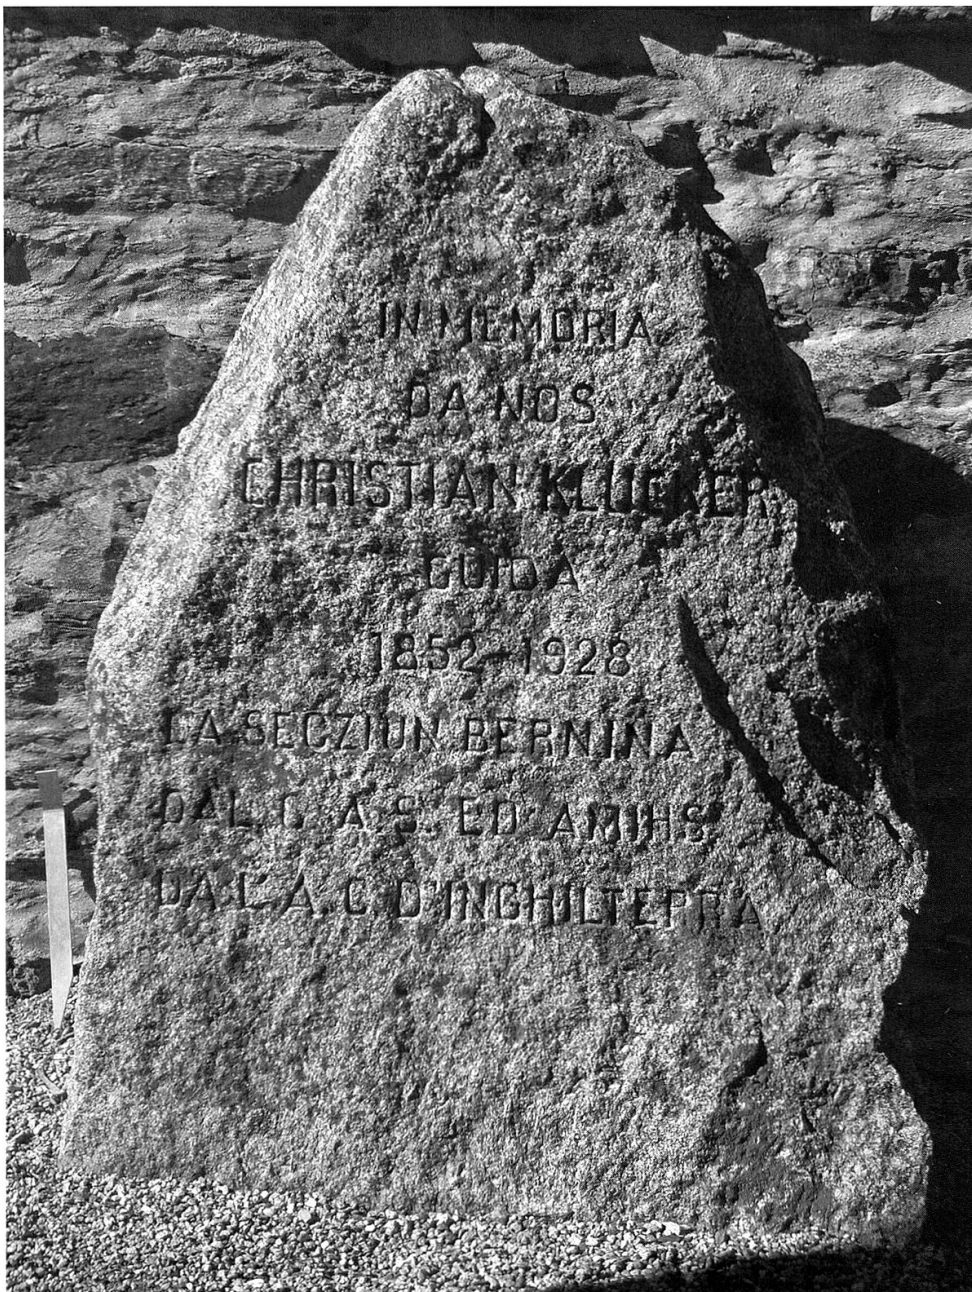 IN MEMORIA
DA NOS
CHRISTIAN KLUCKER
GUIDA
1852-1928
LA SECZIUN BERNINA
DAL C. A. S. ED AMIHS
DAL A. C. D'INGHILTERRA